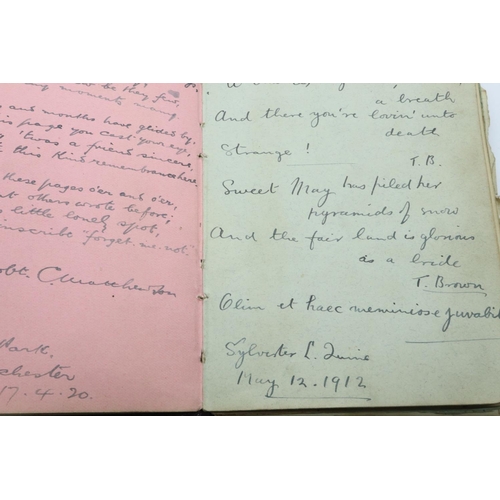 be they few,
moments many
and months have glided by,
this page you cast your eye,
'twas a friend sincere,
this kind remembrance here
these pages o'er and o'er,
others wrote before;
little lonely spot,
"forget me not."
C. Mathewson
Park,
17.4.20.
a breath
And there you're lovin' unto
death
Strange!
T.B.
Sweet May has piled her
pyramids of snow
And the fair land is glorious
as a bride
T. Brown
Olim et haec meminiose juvabit
Sylvester L.
May 12. 1912